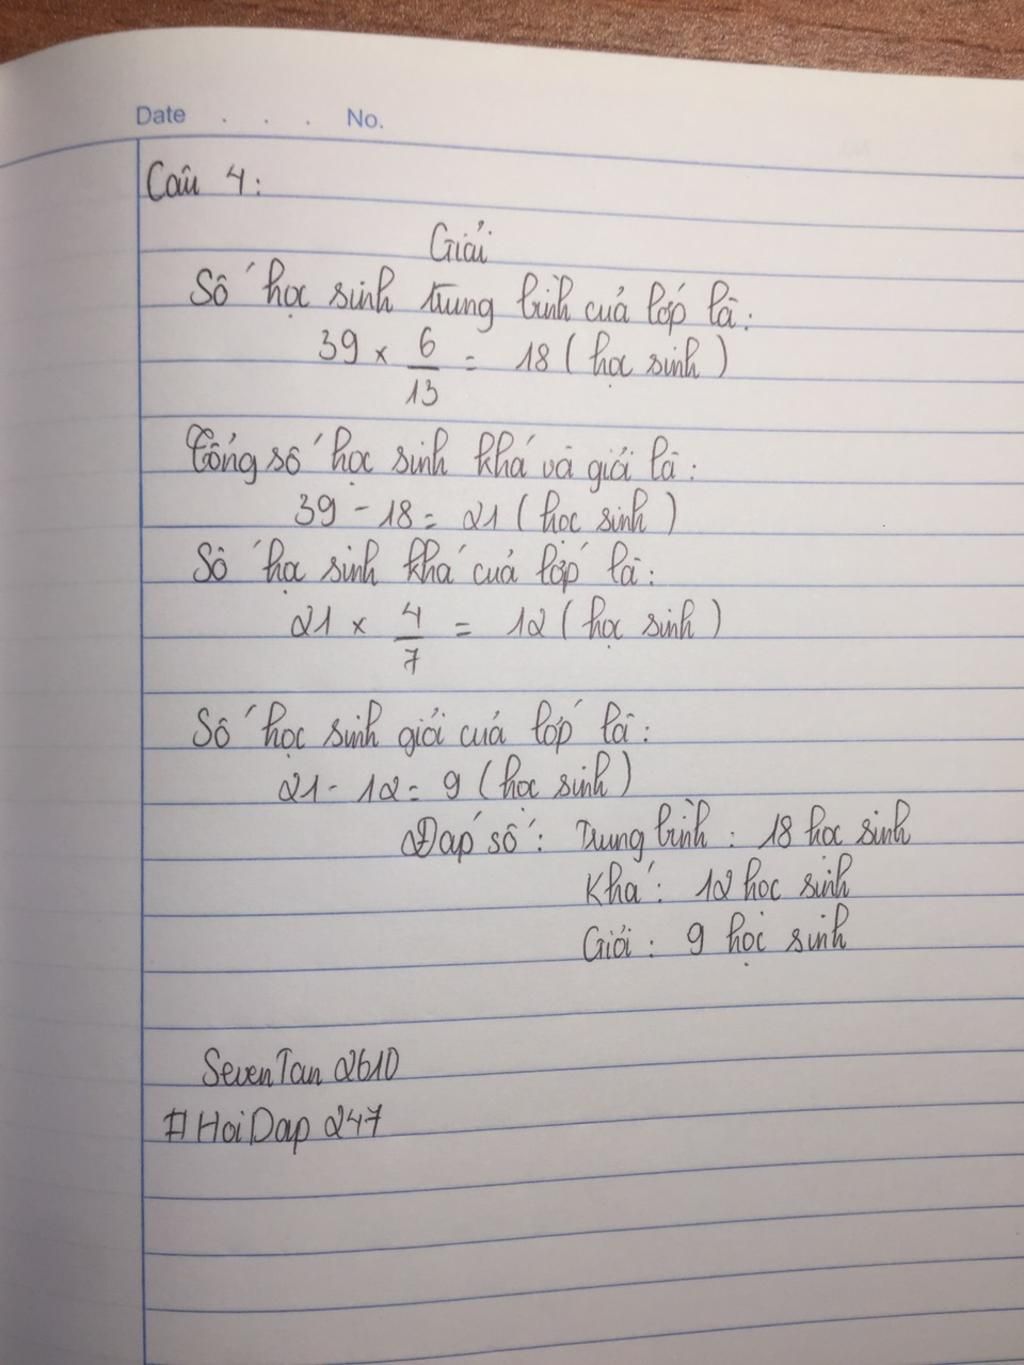 Date . . . No.
Câu 4:
Giải
Số học sinh trung bình của lớp là:
39 x 6/13 = 18 ( học sinh )
Tổng số học sinh khá và giỏi là:
39 - 18 = 21 ( học sinh )
Số học sinh khá của lớp là:
21 x 4/7 = 12 ( học sinh )
Số học sinh giỏi của lớp là:
21 - 12 = 9 ( học sinh )
Đáp số: Trung bình: 18 học sinh
Khá: 12 học sinh
Giỏi: 9 học sinh
SevenTan2610
#HoiDap247